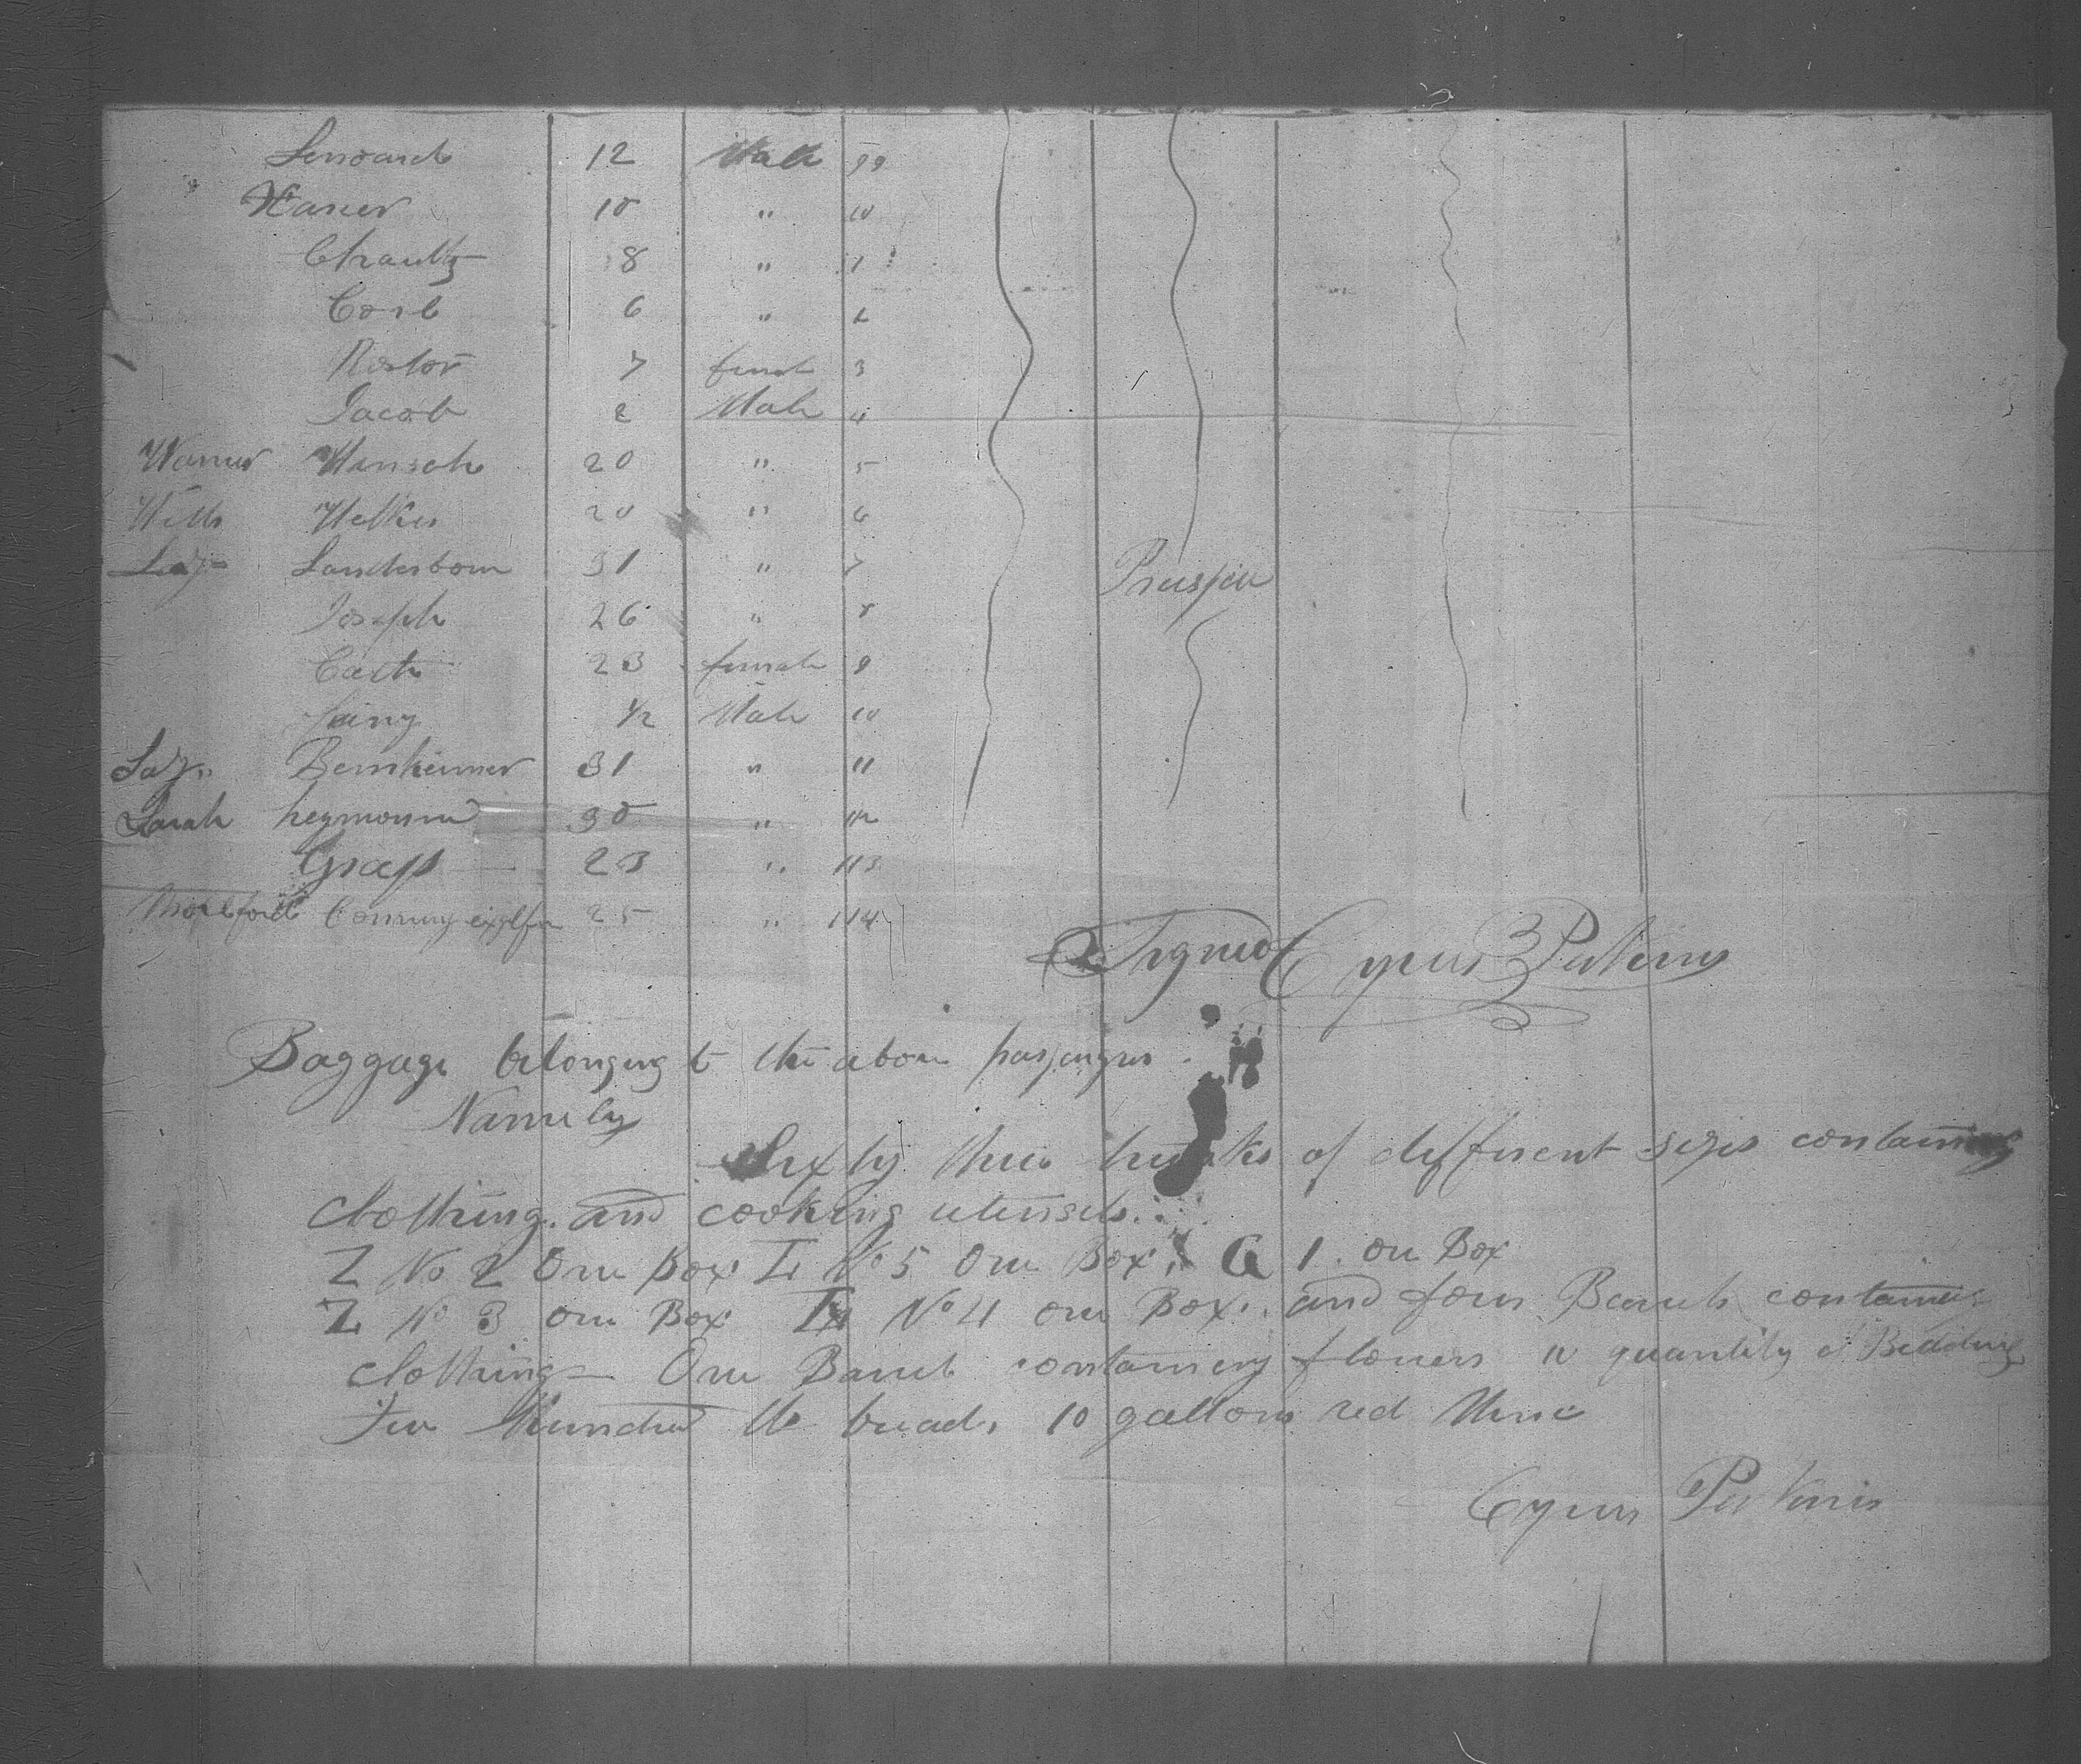 Lenoard 12 Male 99
Xaner 10 " 10
8 " 1
Corl 6 " 2
Restor 7 female 3
Jacob 2 Male 4
Warner Hirsch 20 " 5
Welker 20 " 6
Laz Landerborn 31 " 7 Prussia
Joseph 26 " 8
Cath 23 female 9
1/2 Male 10
Laz. Bernheimer 31 " 11
Sarah heymound 30 " 112
Grass 23 " 113
25 " 114
Signed Cyrus B Perkins
Baggage belonging to the above passengers
Namely
Sixty three trunks of different sizes containing
Clothing. and cooking utensels.
Z No 2 One Box L No 5 One Box, G 1. one Box
Z No 3 one Box No 4 one Box. and four Barrels containing
clothing — One Barrel containing flowers a quantity of Bedding
Few Hundred lb bread, 10 gallons red Wine
Cyrus Perkins